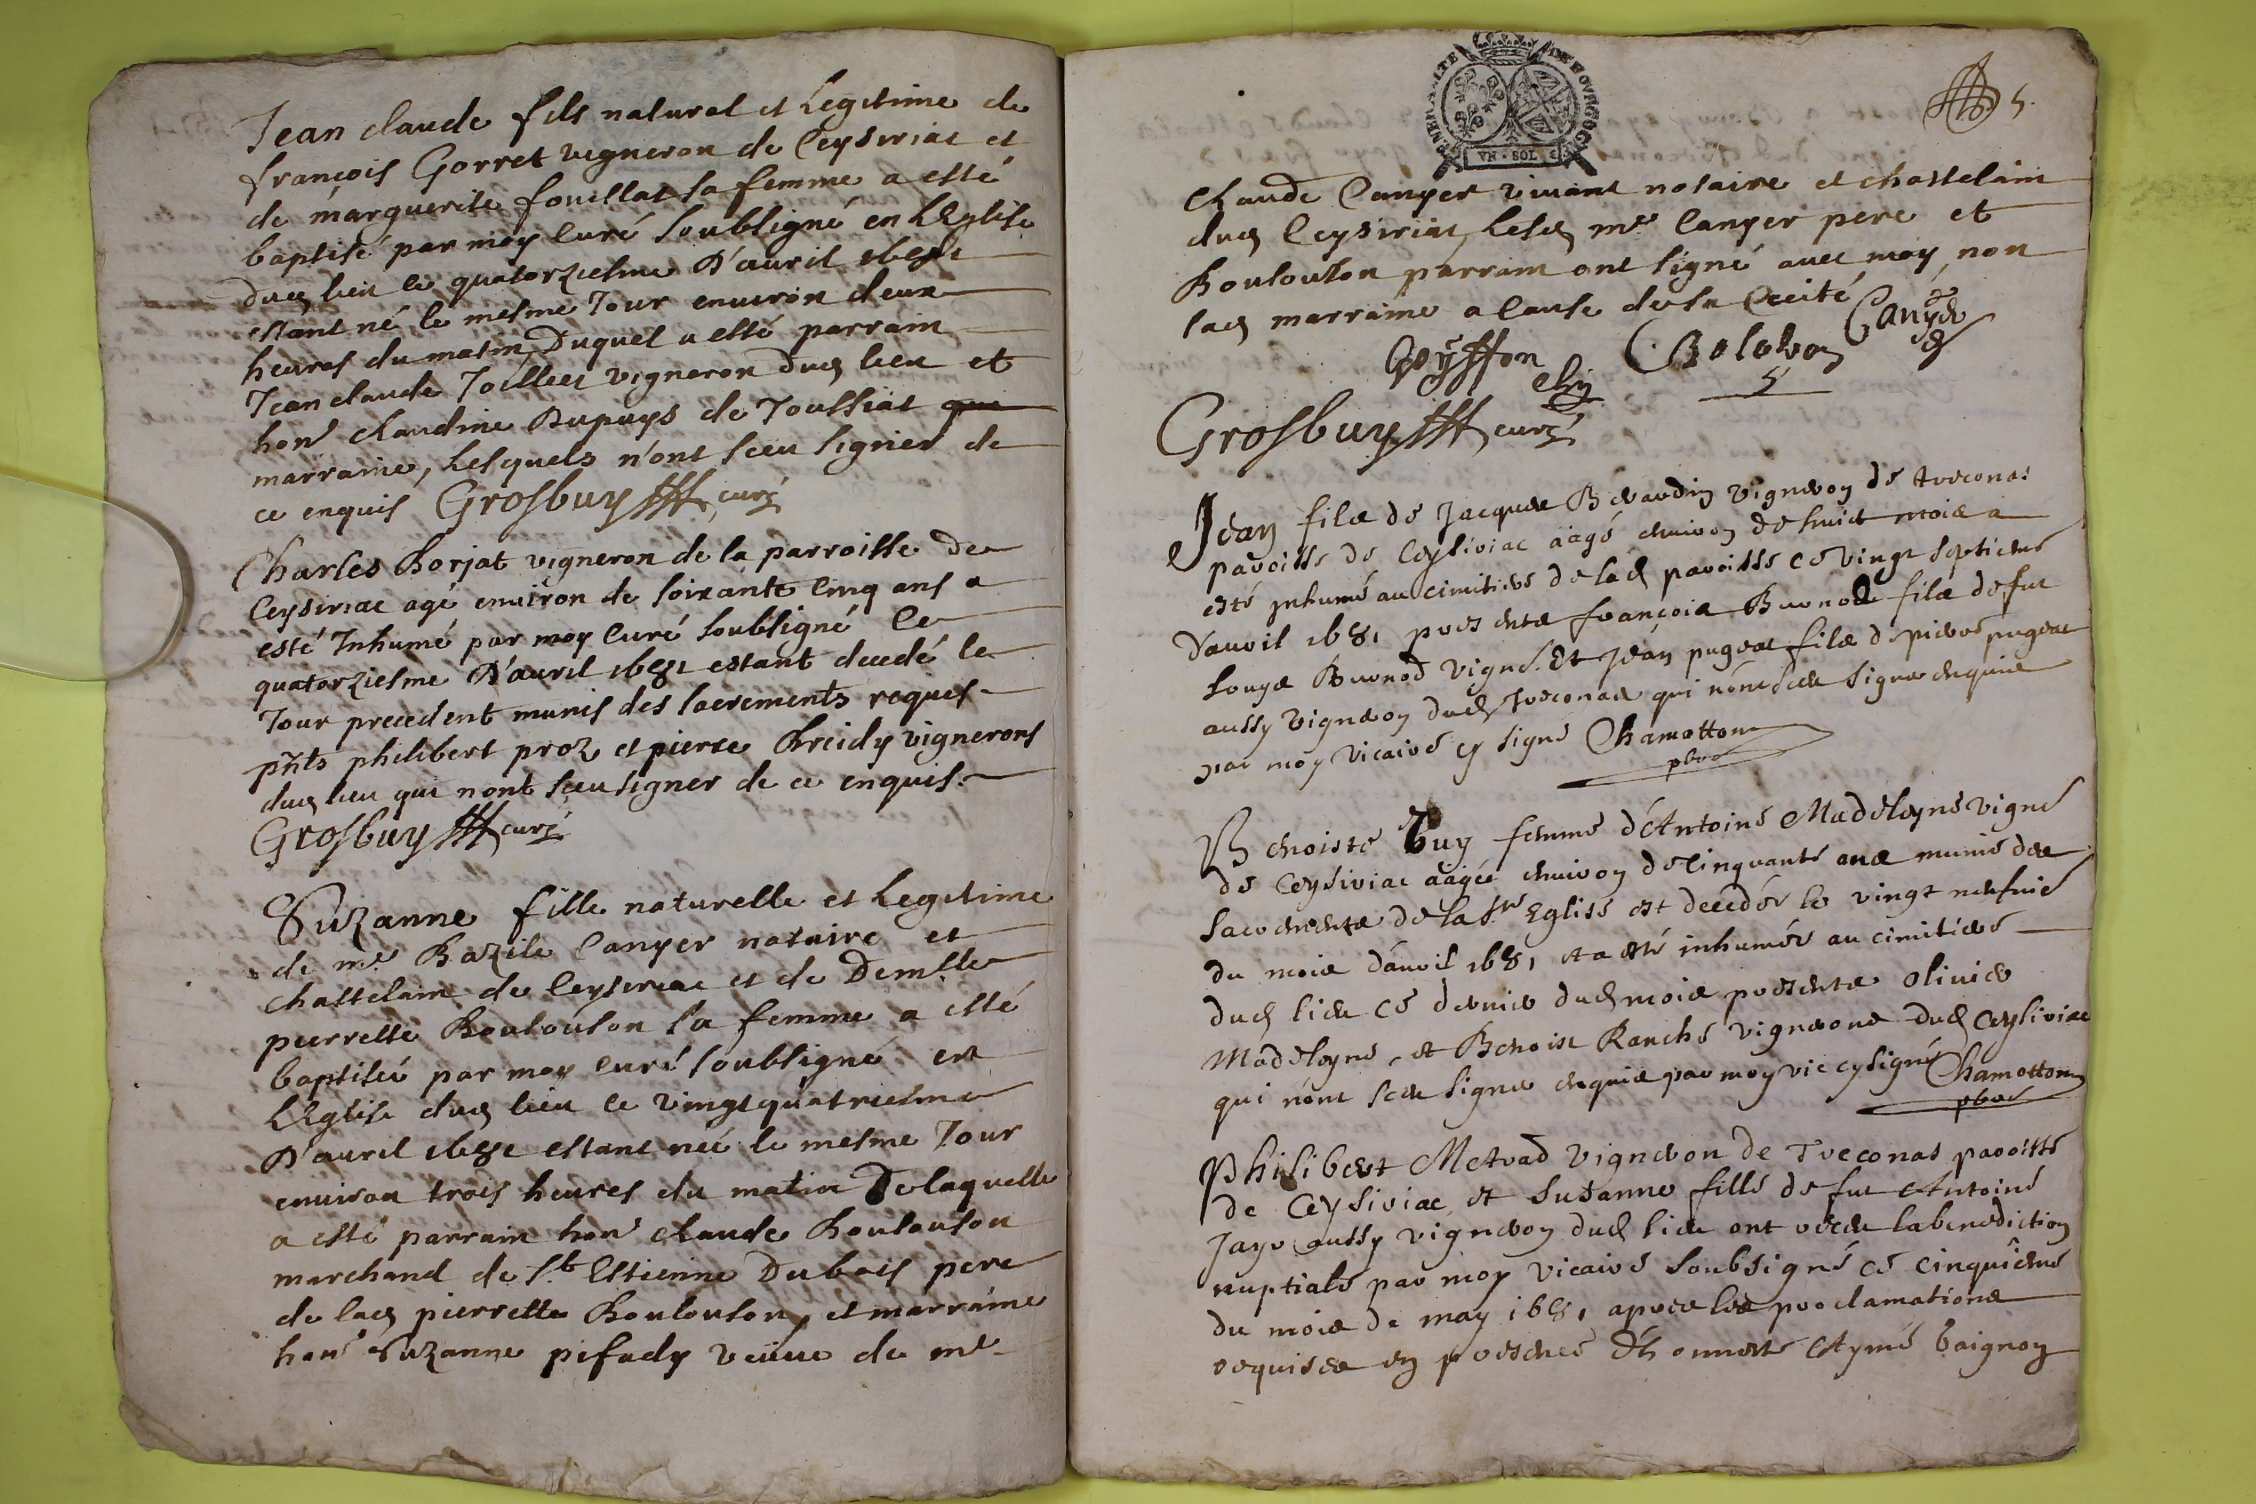 Jean claude fils naturel et Legitime de
françois Gorret vigneron de Ceysiriat et
de marguerite fouillat sa femme a esté
baptisé par moy Curé soubsigné en L'Eglise
dud lieu ce quatorziesme D'auril 1681
estant né le mesme Jour enuiron deux
heures du matin, Duquel a esté parrain
Jean claude vigneron dud lieu et
hon claudine Dupuys de Toussiat
marraine, Lesquels n'ont sceu signer de
ce enquis Grosbuy curé
Charles Borjat vigneron de la parroisse de
Ceysiriat agé enuiron de soixante Cinq ans a
esté Inhumé par moy Curé soubsigné Ce
quatorziesme D'auril 1681 estant decedé le
Jour precedent munis des sacrements requis
pnts philibert proz et pierre Breidy vignerons
dud lieu qui n'ont sceu signer de ce enquis.
Grosbuy curé
Suzanne fille naturelle et Legitime
de me Bazile Canyer notaire et
chastelain de Ceysiriat et de Demlle
pierrette Boulouson sa femme a esté
baptisée par moy Curé soubsigné en
L'Eglise dud lieu ce vingt quatriesme
D'auril 1681 estant née le mesme Jour
enuiron trois heures du matin De laquelle
a esté parrain hon claude Boulouson
marchand de St Estienne Dubois pere
de lad pierrette Boulouson, et marraine
hon Suzanne pifady veuue de me
GENERALITE DE BOVRGOGNE
VN SOL
5.
Claude Canyer viuant notaire et chastelain
dud Ceysiriat, Lesd me Canyer pere et
Boulouson parrain ont signé auec moy, non
lad marraine a Cause de sa Cecité
Canyer
Goÿffon Bolozon
Grosbuy curé
Jean filz de Jacques Beraudin vigneron de Treconas
paroisse de Ceysiriac aagé enuiron de huict mois a
esté inhumé au cimitiere de lad paroisse ce vingt septieme
d'auril 1681 presents françois Buonod filz de fut
Louys Buonod vign. Et Jean pugeat filz de pierre pugeat
aussy vigneron dud Treconas qui n'ont sceu signer enquis
par moy vicaire cy signé Chamotton
pbre
Benoiste Guy femme d'Antoine Madeleyne vign
de Ceysiriac aagée enuiron de cinquante ans munie des
sacrements de la ste Eglise est decedée le vingt neufuie
du mois d'auril 1681 et a esté inhumée au cimitiere
dud lieu ce dernier dud mois presents oliuier
Madeleyne, et Benoist Ranche vignerons dud Ceysiriac
qui n'ont sceu signer enquis par moy vic cy signé Chamotton
pbre
Philibert Metrad vigneron de Treconas paroisse
de Ceysiriac, et Susanne fille de fut Antoine
Jayr aussy vigneron dud lieu ont receu la benediction
nuptiale par moy vicaire soubsigné ce cinquième
du mois de may 1681 apres les proclamations
requises en presence d'honneste Aymé baignon